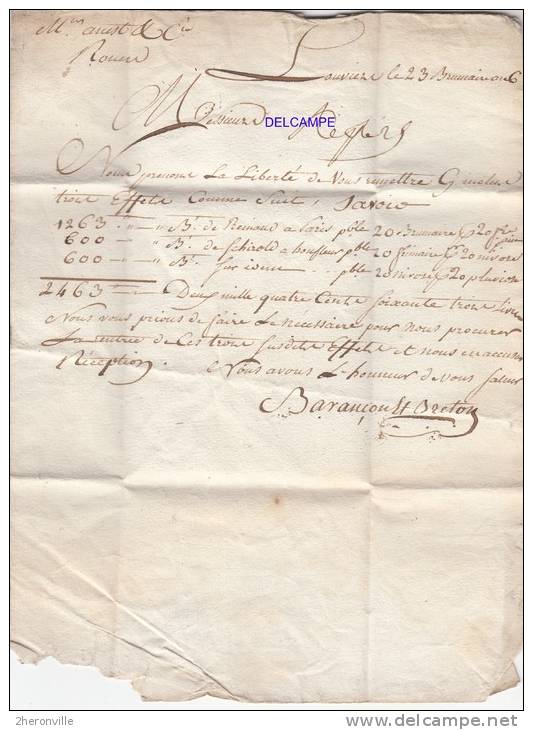 Rouen
Louviers le 23 Brumaire an 6
DELCAMPE
Messieurs
Nous prenons La Liberté de Vous remettre Cy inclus
trois Effets Comme Suit, Savoir
1263 " " Bt. de Renaud a Paris pble 20 Brumaire
600 " " Bt. de a honfleur pble 20 frimaire 20 nivose
600 " Bt. Sur idem .. pble 20 nivose 20 pluviose
2463 Deux mille quatre Cents soixante trois livres
Nous vous prions de faire le nécessaire pour nous procurer
La rentrée de Ces trois susdits Effets et nous en accuser
Réception. Nous avons L'honneur de vous saluer
Barançon & Breton
2heronville
www.delcampe.net